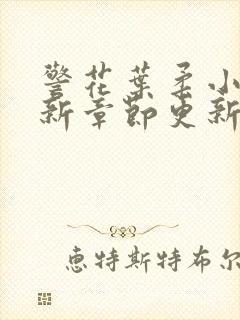 警花葉柔小
新章節更新
惠特斯特布尔